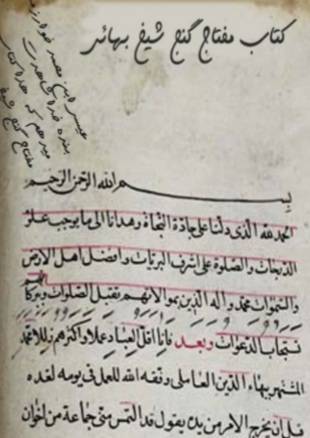 کتاب مفتاح گنج شیخ بهائی
عیسی ابن
بنده خدا
میدهم که هذا کتاب
مفتاح گنج شیخ
بسم الله الرحمن الرحیم
الحمد لله الذی دلنا علی جادة النجاة و هدانا الی ما یوجب علو
الدرجات و الصلوة علی اشرف البریات و افضل اهل الارض
و السموات محمد و آله الذین بموالاتهم تقبل الصلوات و ببرکاتهم
تستجاب الدعوات و بعد فانا اقل العباد عملا و اکثرهم زللا محمد
المشتهر ببهاء الدین العاملی وفقه الله للعمل فی یومه لغده
قبل ان یخرج الامر من یده یقول قد التمس منی جماعة من اخوان